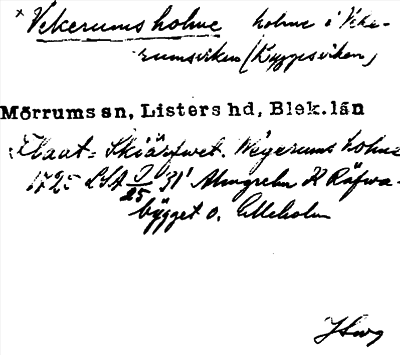 × Vekerumsholme holme i Veke-
rumsviken (Kuggesviken)
Mörrums sn, Listers hd, Blek. län
Flaat= Skiärfwet. Wägerums holme
1725 LSA J/25 31¹ Almgrehn K Räfwa-
bygget o. Elleholm